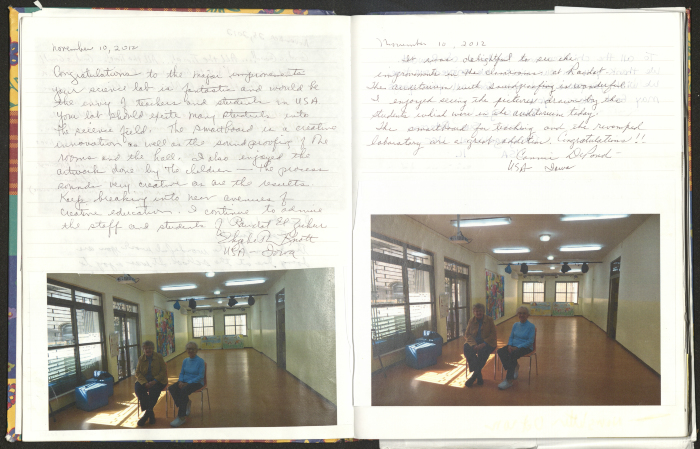 november 10, 2012
Congratulations to the major improvements
your science lab is fantastic and would be
the envy of teachers and students in USA
You lab should excite many students into
the science field. The Smartboard is a creative
innovation as well as the soundproofing of the
rooms and the hall. I also enjoyed the
artwork done by the children — The process
sounds very creative as are the results.
Keep breaking into new avenues of
creative education. I continue to admire
the staff and students of Rawdat El Zuhur
USA - Iowa
November 10, 2012
It was delightful to see the
improvements in the classrooms at Rawdat
The auditorium with soundproofing is wonderful
I enjoyed seeing the pictures drawn by the
students which were in the auditorium today.
The smartboard for teaching and the revamped
laboratory are a great addition. Congratulations!!
Connie DePond
USA Iowa